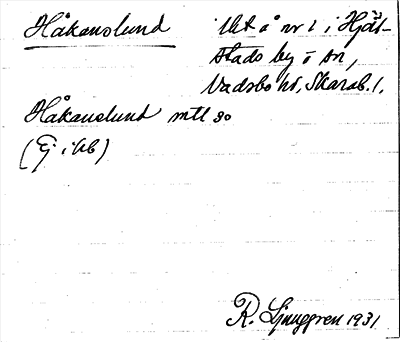 Håkanslund
Utt å nr 1 i Hjäl-
stads by o sn,
Vadsbo hd, Skarab. l.
Håkanslund mtl 30
(Ej i kb)
R. Ljunggren 1931